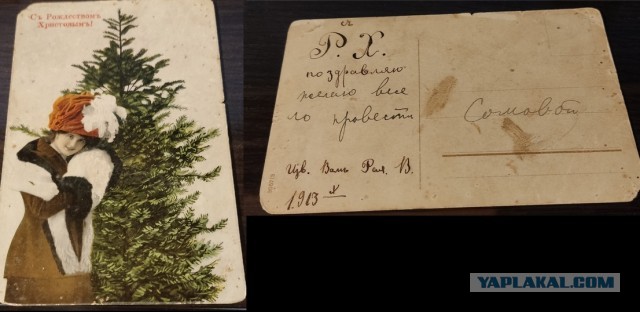 Съ Рождествомъ
Христовымъ!
съ
Р. Х.
поздравляю
желаю весе
ло провести
Изв. Вамъ
1913
YAPLAKAL.COM